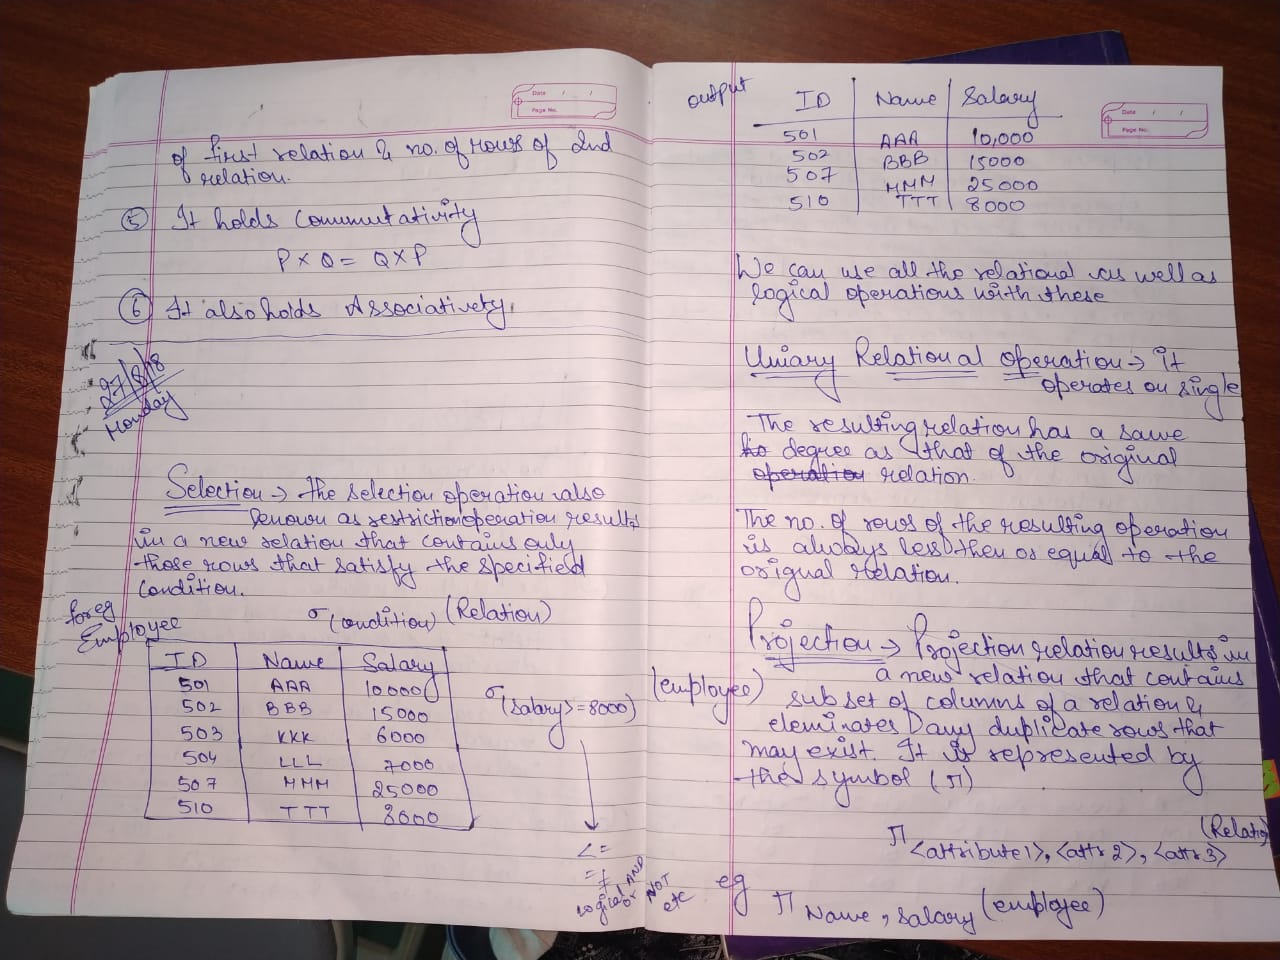 Date / /
Page No.
of first relation & no. of rows of 2nd
relation.
⑤ It holds Commutativity
P X Q = Q X P
⑥ It also holds Associativety.
27/8/18
Monday
Selection → the selection operation also
known as restriction operation results
in a new relation that contains only
those rows that satisfy the specified
condition.
for eg σ (condition) (Relation)
Employee
ID Name Salary
501 AAA 10000
502 BBB 15000
503 KKK 6000
504 LLL 7000
507 MMM 25000
510 TTT 8000
σ (salary >= 8000) (employee)
<=
=
≠
logical AND
or NOT
etc
output
ID Name Salary
501 AAA 10,000
502 BBB 15000
507 MMM 25000
510 TTT 8000
Date / /
Page No.
We can use all the relational as well as
logical operations with these
Uniary Relational operation → it
operates on single
The resulting relation has a same
degree as that of the original
operation relation.
The no. of rows of the resulting operation
is always less then or equal to the
origual relation.
Projection → Projection relation results in
a new relation that contains
subset of columns of a relation &
eleminates any duplicate rows that
may exist. It is represented by
the symbol (π)
π <attribute1>, <attr 2>, <attr 3> (Relation
eg
π Name, Salary (employee)